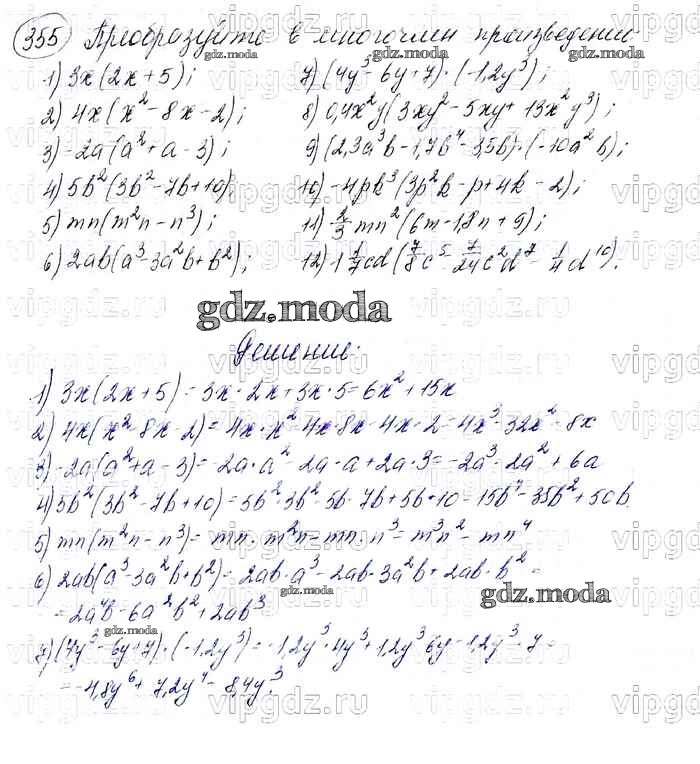 355 Преобразуйте в многочлен произведение
1) 3x(2x+5);
2) 4x(x²-8x-2);
3) -2a(a²+a-3);
4) 5b²(3b²-7b+10);
5) mn(m²n-n³);
6) 2ab(a³-3a²b+b²);
7) (4y³-6y+7)·(-1,2y³);
8) 0,4x²y(3xy²-5xy+13x²y³);
9) (2,3a³b-1,7b⁴-3,5b)·(-10a²b);
10) -4pk³(3p²k-p+4k-2);
11) 2/3 mn²(6m-1,8n+9);
12) -1 1/7 cd(7/8 c⁵-7/24 c²d⁷-1/4 d¹⁰).
gdz.moda
Решение.
1) 3x(2x+5)=3x·2x+3x·5=6x²+15x
2) 4x(x²-8x-2)=4x·x²-4x·8x-4x·2=4x³-32x²-8x
3) -2a(a²+a-3)=-2a·a²-2a·a+2a·3=-2a³-2a²+6a
4) 5b²(3b²-7b+10)=5b²·3b²-5b·7b+5b·10=15b⁴-35b²+50b.
5) mn(m²n-n³)=mn·m²n-mn·n³=m³n²-mn⁴
6) 2ab(a³-3a²b+b²)=2ab·a³-2ab·3a²b+2ab·b²=
gdz.moda
=2a⁴b-6a²b²+2ab³
gdz.moda
7) (4y³-6y+7)·(-1,2y³)=-1,2y³·4y³+1,2y³·6y-1,2y³·7=
=-4,8y⁶+7,2y⁴-8,4y³.
vipgdz.ru